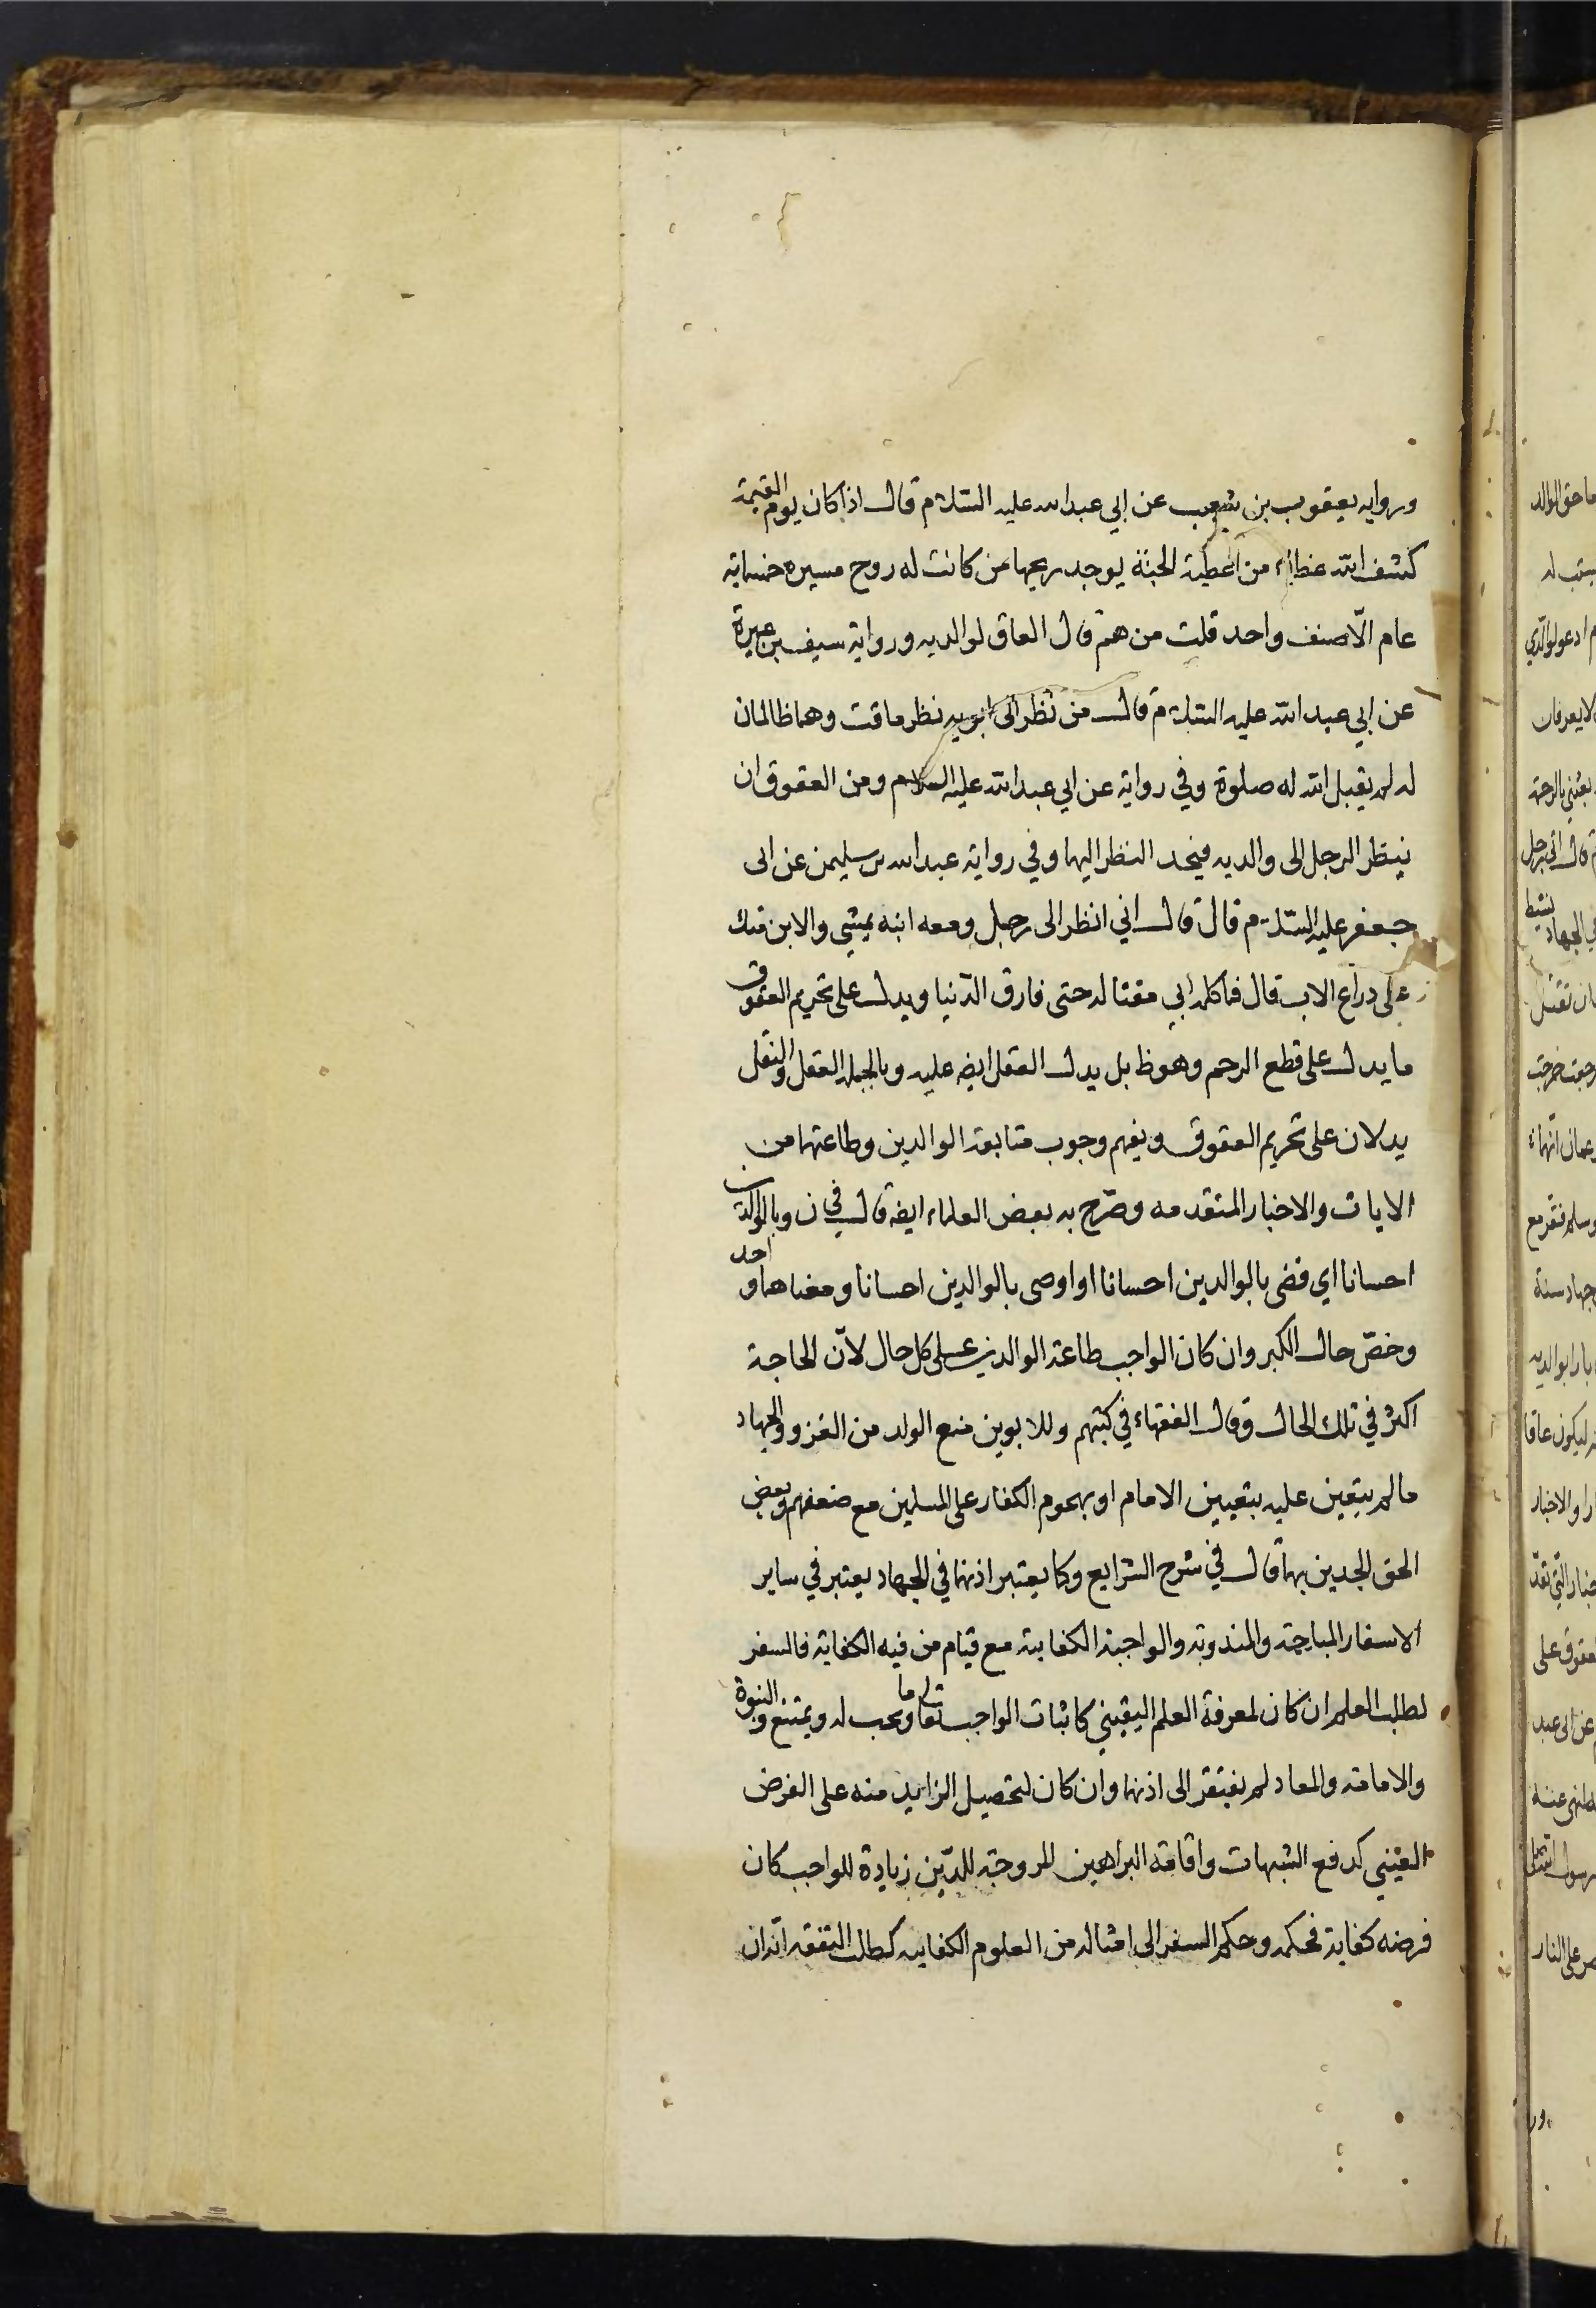 ورواية يعقوب بن شعيب عن ابي عبدالله عليه السلام قال اذا كان يوم القيمة
كشف الله غطاء من اغطية الجنة يوجد ريحها من كانت له روح مسيره خمسمائة
عام الّا صنف واحد قلت من هم قال العاق لوالديه ورواية سيف بن عميرة
عن ابي عبد الله عليه السلام قال من نظر الى ابويه نظر ماقت وهما ظالمان
له لم يقبل الله له صلوة وفي رواية عن ابي عبد الله عليه السلام ومن العقوق ان
ينظر الرجل الى والديه فيحد النظر اليهما وفي رواية عبدالله بن سليمن عن ابى
جعفر عليه السلام قال قال اني انظر الى رجل ومعه ابنه يمشي والابن متك
على دراع الاب قال فما كلمه ابي مقتا له حتى فارق الدنيا ويدل على تحريم العقوق
ما يدل على قطع الرحم وهو ظ بل يدل العقل ايضه عليه وبالجمله العقل والنقل
يدلان على تحريم العقوق ويفهم وجوب متابعة الوالدين وطاعتهما من
الايات والاخبار المتقدمه وصرّح به بعض العلماء ايضه قال في ن وبالوالدين
احسانا اي قضى بالوالدين احسانا او اوصى بالوالدين احسانا ومعناهما واحد
وخصّ حال الكبر وان كان الواجب طاعة الوالدين على كل حال لانّ الحاجة
اكثر في تلك الحال وقال الفقهاء في كتبهم وللابوين منع الولد من الغزو والجهاد
ما لم يتعين عليه بتعيين الامام او بهجوم الكفار على المسلمين مع ضعفهم وبعض
الحق الجدين بهما قال في شرح الشرايع وكما يعتبر اذنهما في الجهاد يعتبر في ساير
الاسفار المباحة والمندوبة والواجبة الكفاية مع قيام من فيه الكفاية فالسفر
لطلب العلم ان كان لمعرفة العلم اليقيني كاثبات الواجب تعالى وما يجب له ويمتنع والنبوة
والامامة والمعاد لم يفتقر الى اذنهما وان كان لتحصيل الزايد منه على الفرض
العيني كدفع الشبهات واقامة البراهين المروجة للدّين زيادة للواجب كان
فرضه كفاية فحكمه وحكم السفر الى امثاله من العلوم الكفايية كطلب التفقه انه ان